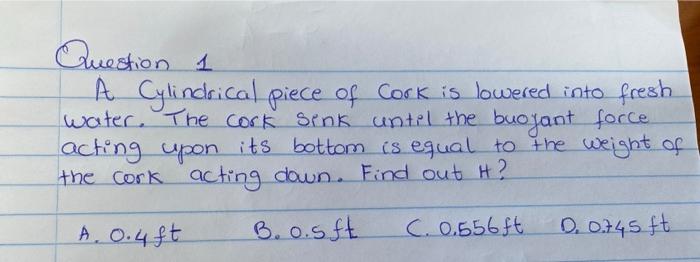 Question 1
A Cylindrical piece of Cork is lowered into fresh
water. The cork sink until the buoyant force
acting upon its bottom is equal to the weight of
the cork acting down. Find out H?
A. 0.4 ft B. 0.5 ft C. 0.556 ft D. 0.745 ft